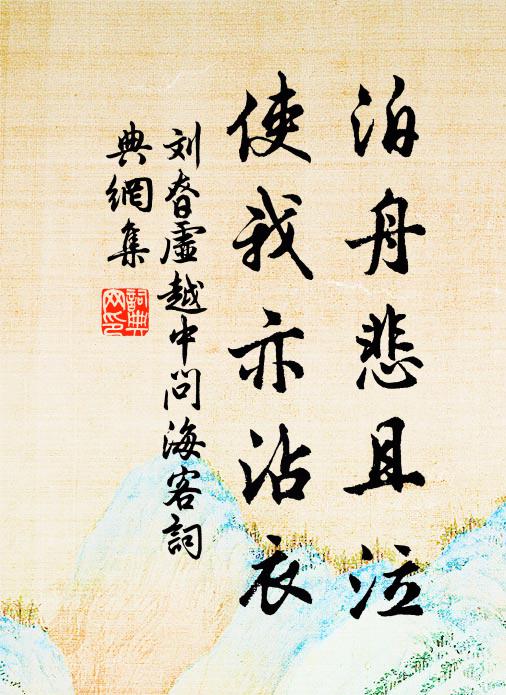 泊舟悲且泣
使我亦沾衣
刘眘虚越中问海客词
典網集
詞典
网印